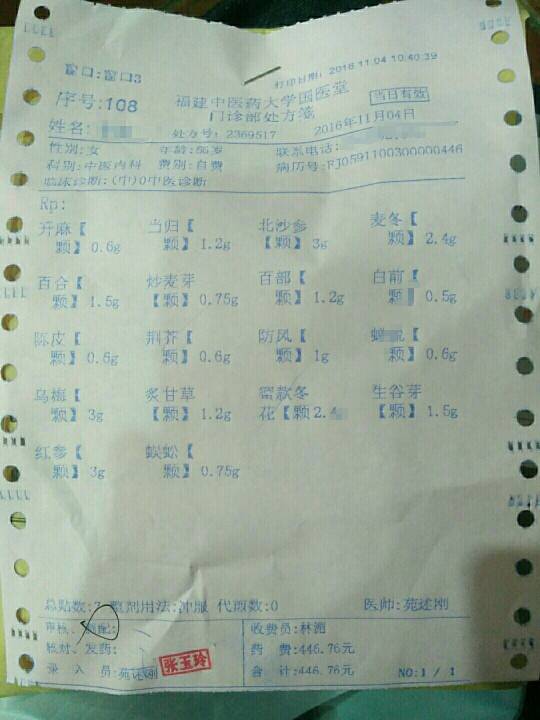 窗口:窗口3
打印日期: 2016.11.04 10:40:39
序号:108
福建中医药大学国医堂
门诊部处方笺
当日有效
姓名:
处方号: 2369517
2016年11月04日
性别:女 年龄:56岁 联系电话:
科别:中医内科 费别:自费 病历号:FJ0591100300000446
临床诊断:(中)0中医诊断
Rp:
升麻【 当归【 北沙参 麦冬【
颗】 0.6g 颗】 1.2g 【颗】 3g 颗】 2.4g
百合【 炒麦芽 百部【 白前【
颗】 1.5g 【颗】 0.75g 颗】 1.2g 颗 0.5g
陈皮【 荆芥【 防风【
颗】 0.5g 颗】 0.6g 颗】 1g 颗】 0.6g
乌梅【 炙甘草 蜜款冬 生谷芽
颗】 3g 【颗】 1.2g 花【颗】 2.4 【颗】 1.5g
红参【 蜈蚣【
颗】 3g 颗】 0.75g
总贴数:7 煎剂用法:冲服 代煎数:0 医师:苑述刚
审核、调配: 收费员:林湎
核对、发药: 药 费:446.76元
录 入 员:苑述刚 张玉玲 合 计:446.76元 NO:1 / 1